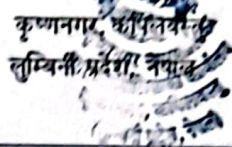 कृष्णनगर, कपिलवस्तु
लुम्बिनी प्रदेश, नेपाल